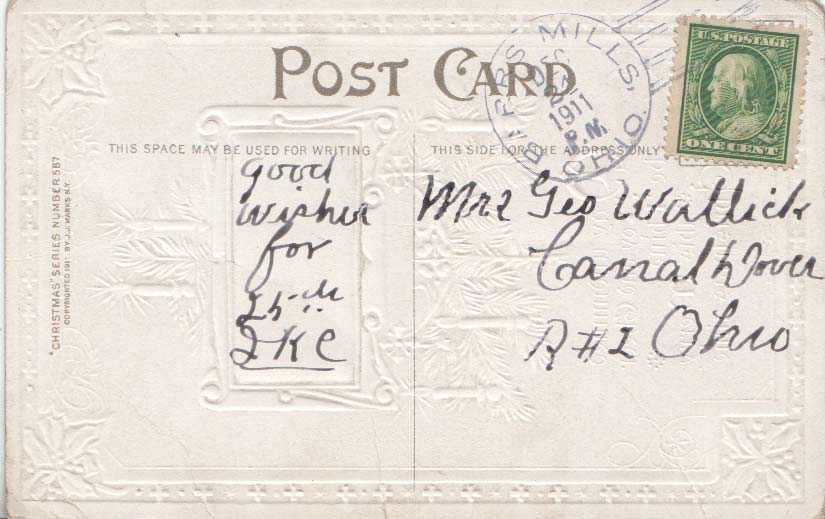 POST CARD
THIS SPACE MAY BE USED FOR WRITING
THIS SIDE FOR THE ADDRESS ONLY
BARRS MILLS, OHIO
DEC
1911
P.M.
U.S. POSTAGE
ONE CENT
"CHRISTMAS" SERIES NUMBER 587
COPYRIGHTED 1911 BY J.J. MARKS N.Y.
good
wishes
for
25th
Mrs Geo Wallick
Canal Dover
R#2 Ohio